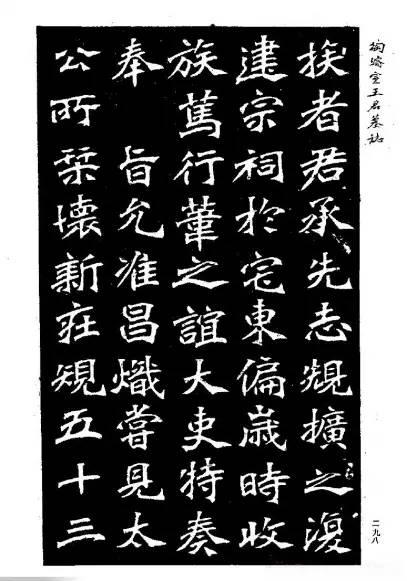 陶濬宣王君墓誌
挨者君承先志規擴之復
建宗祠於宅東偏歲時收
族篤行葦之誼大吏特奏
奉 旨允准昌熾嘗見太
公所栞懷新莊規五十三
二九八